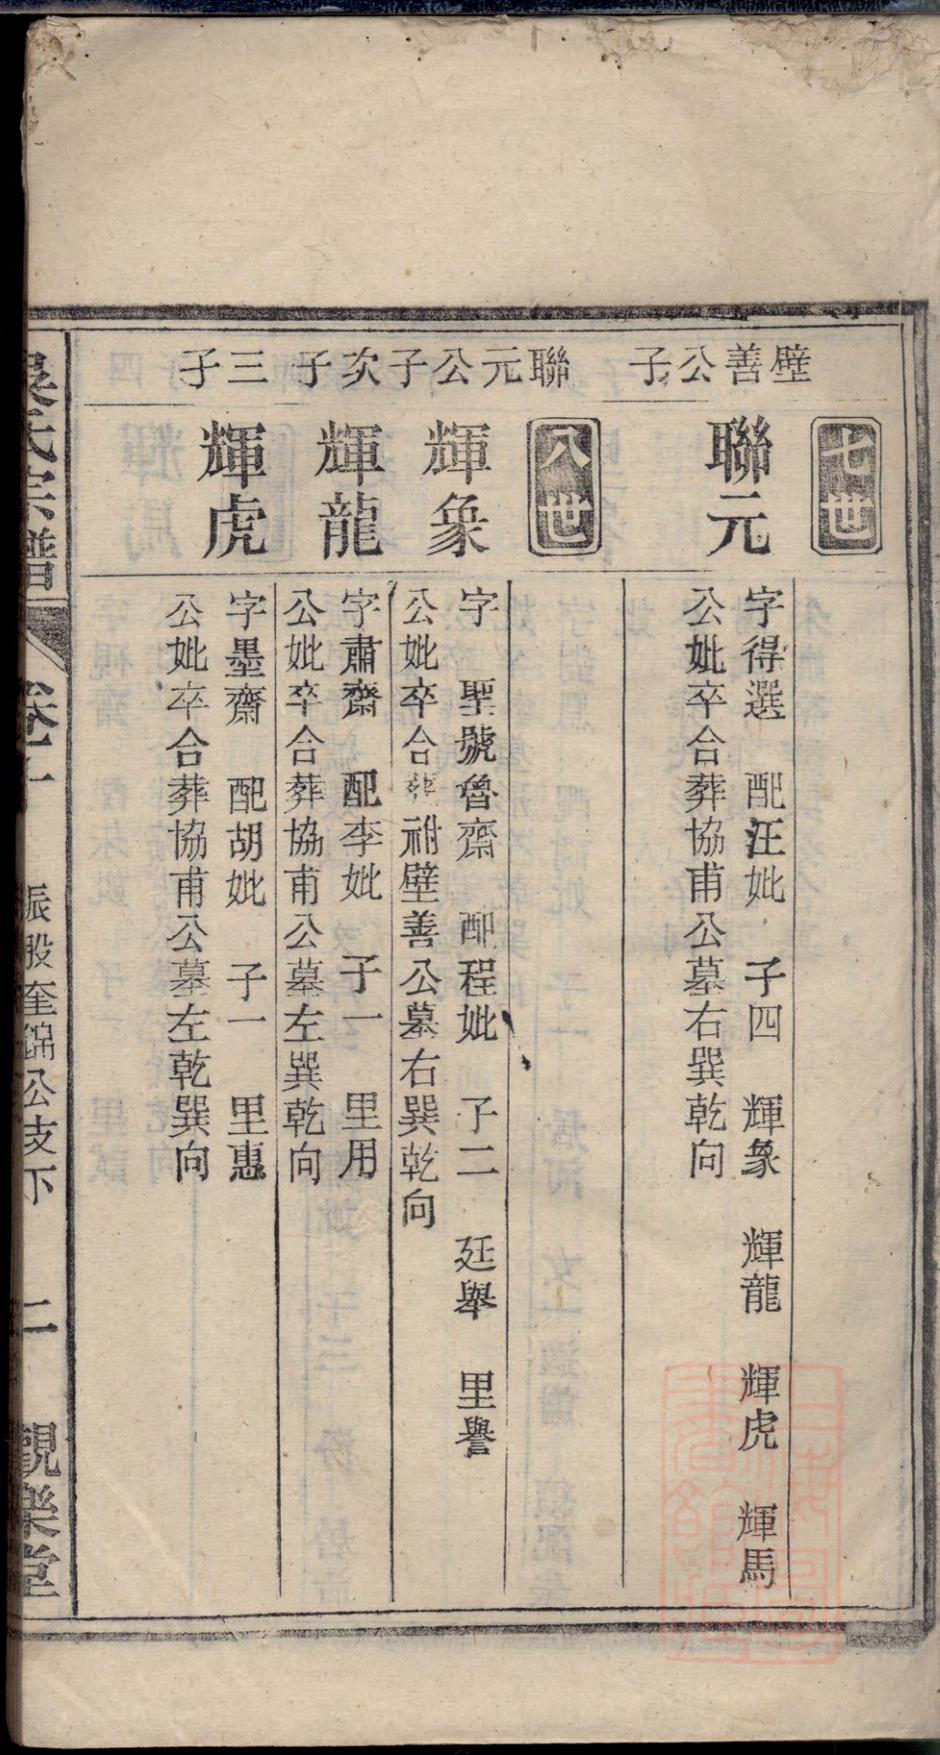 七世
壁善公子
聯元
字得選 配汪妣 子四 輝象 輝龍 輝虎 輝馬
公妣卒合葬協甫公墓右巽乾向
八世
聯元公子
輝象
字 聖號魯齋 配程妣 子二 廷舉 里譽
公妣卒合葬祔壁善公墓右巽乾向
次子
輝龍
字肅齋 配李妣 子一 里用
公妣卒合葬協甫公墓左巽乾向
三子
輝虎
字墨齋 配胡妣 子一 里惠
公妣卒合葬協甫公墓左乾巽向
吳氏宗譜
振股奎錦公支下
二
觀樂堂